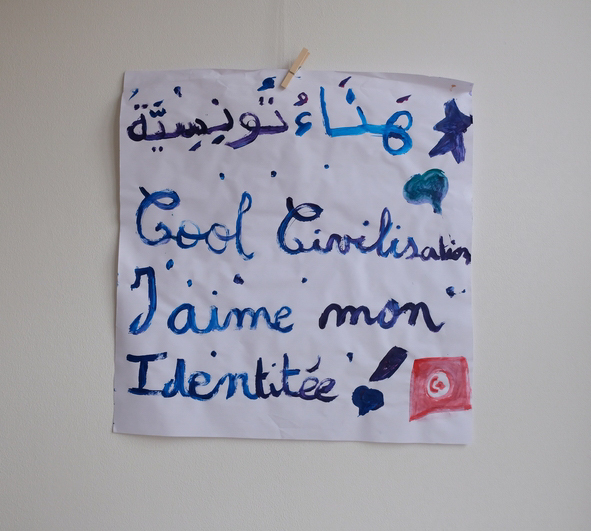 هَنَاءُ تُونِسِيَّةُ
Cool Civilisation
J'aime mon
Identitée !